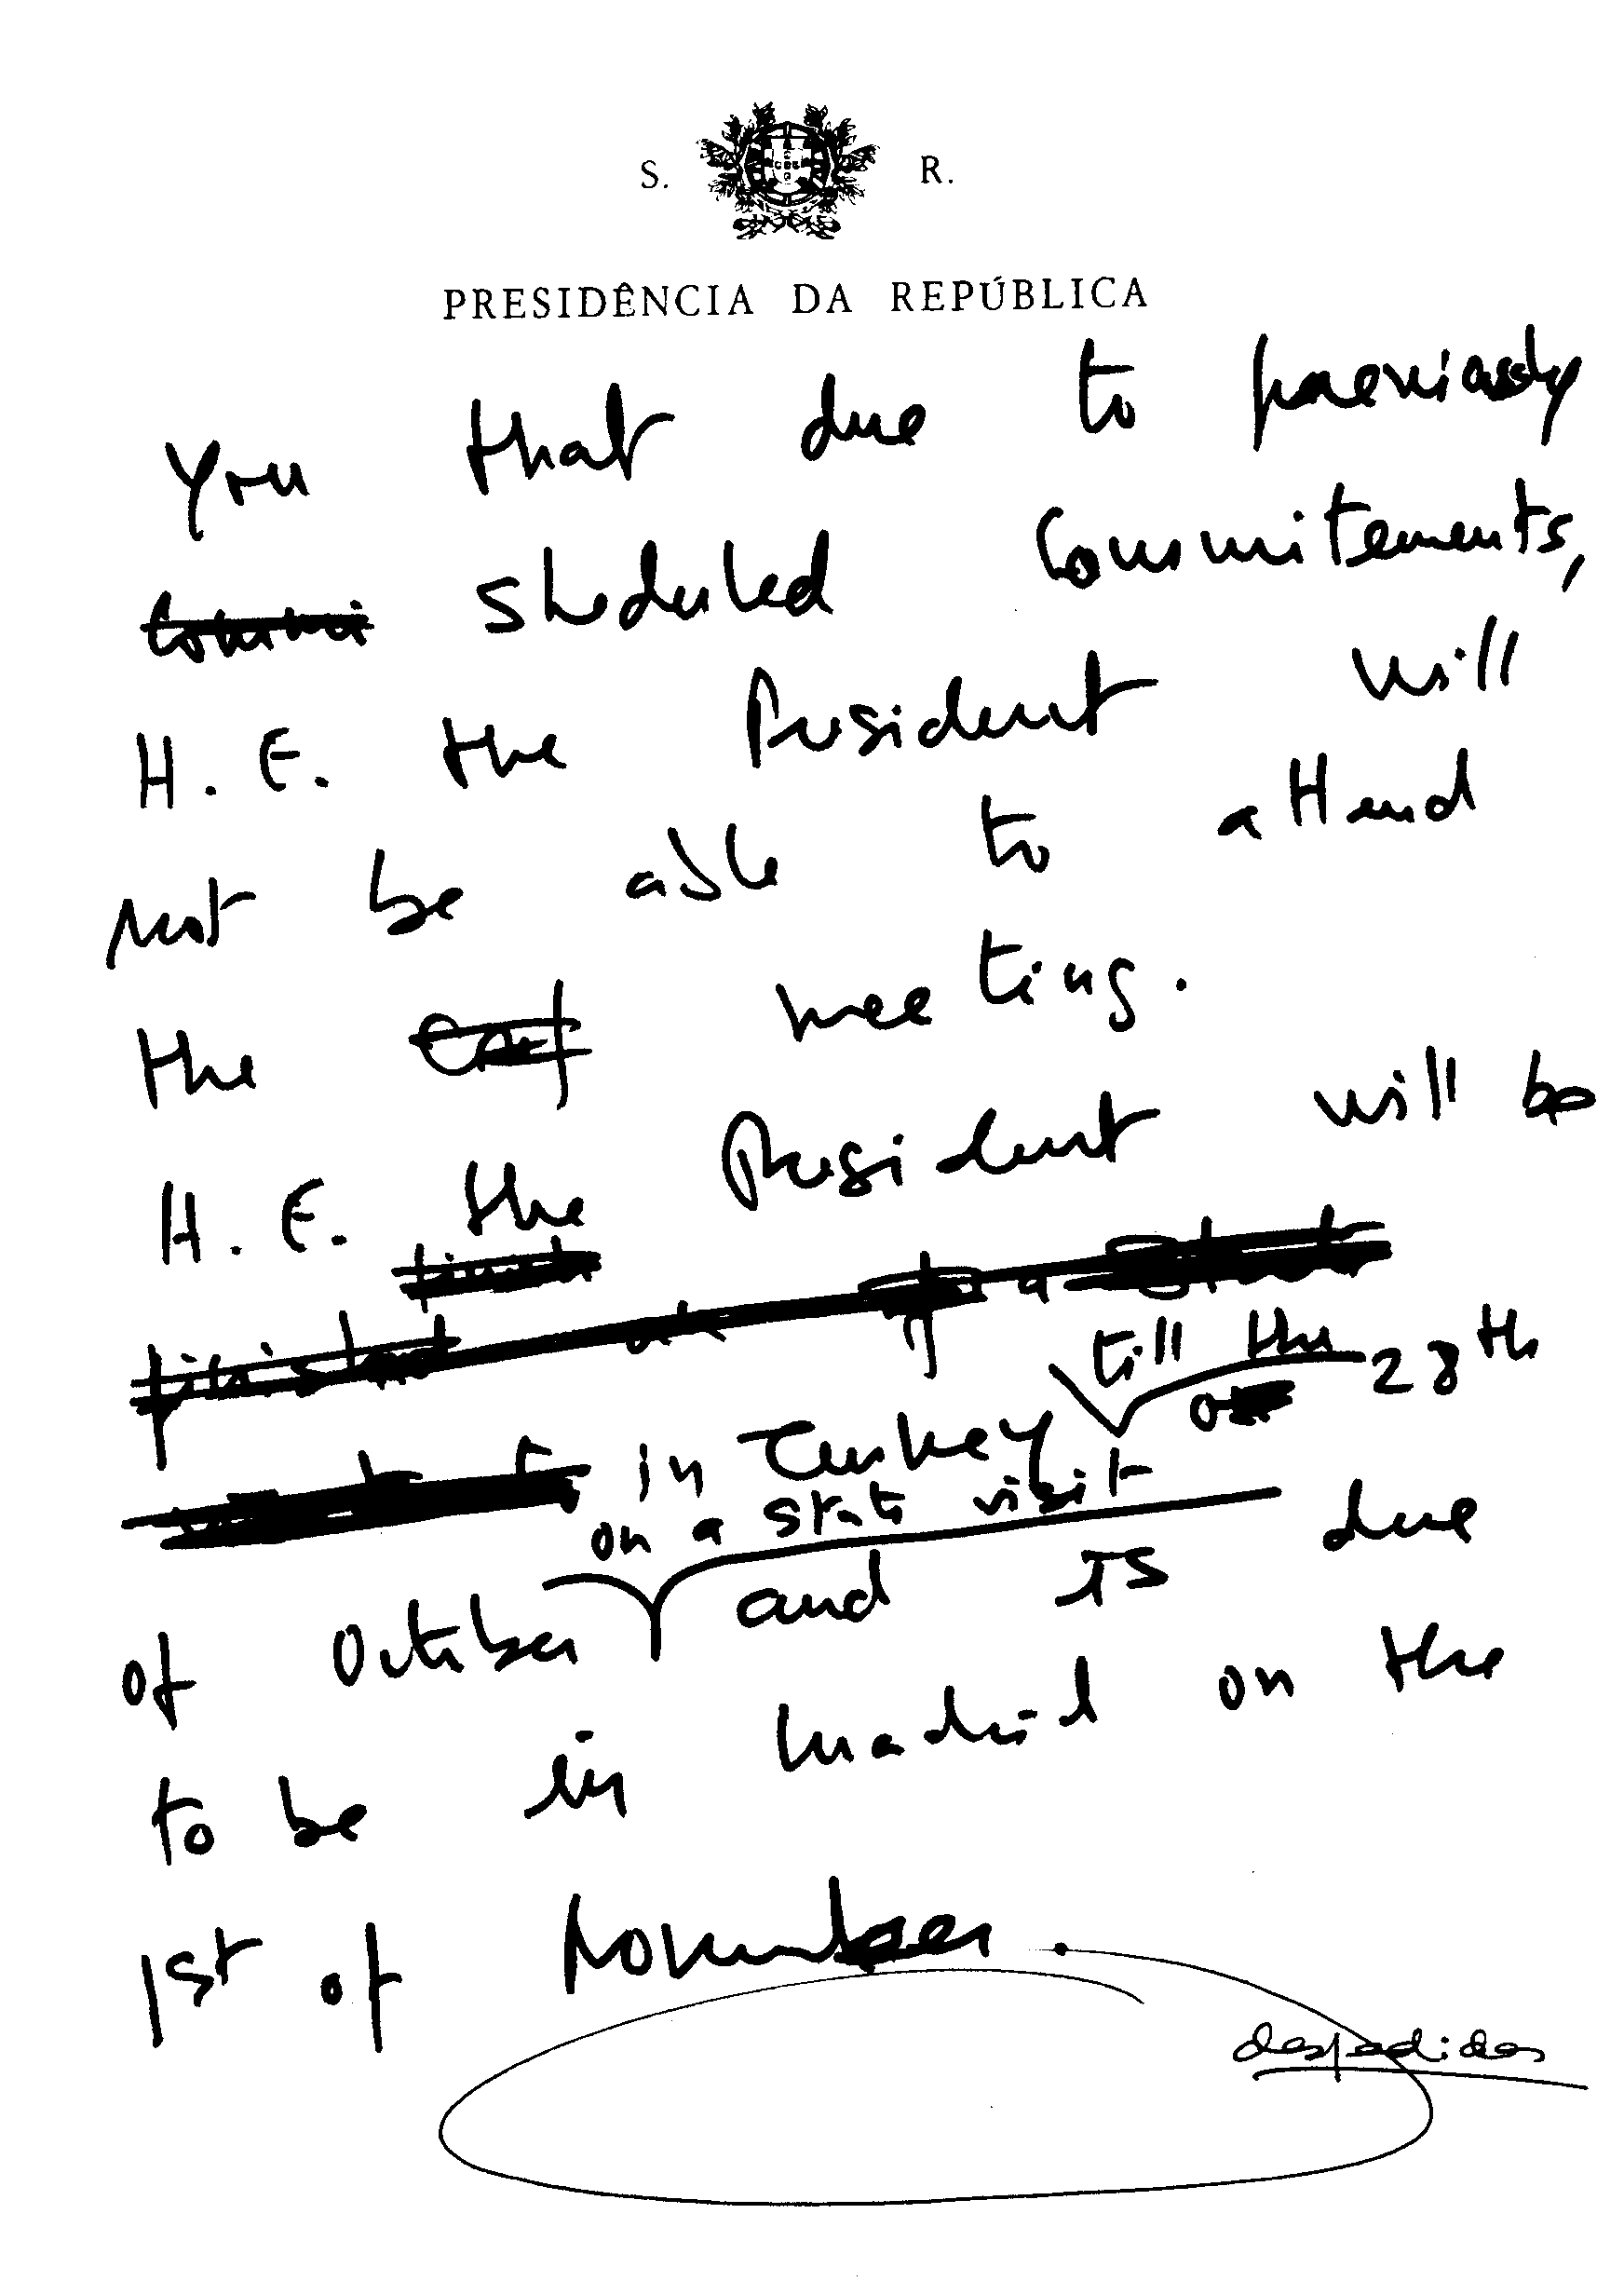 S. R.
PRESIDÊNCIA DA REPÚBLICA
you that due to previously
commi sheduled commitements,
H. E. the President will
not be able to attend
the meeting.
H. E. the President will be
till the
in Turkey 28th
on a state visit
of October and is due
to be in Madrid on the
1st of November.
despedidas